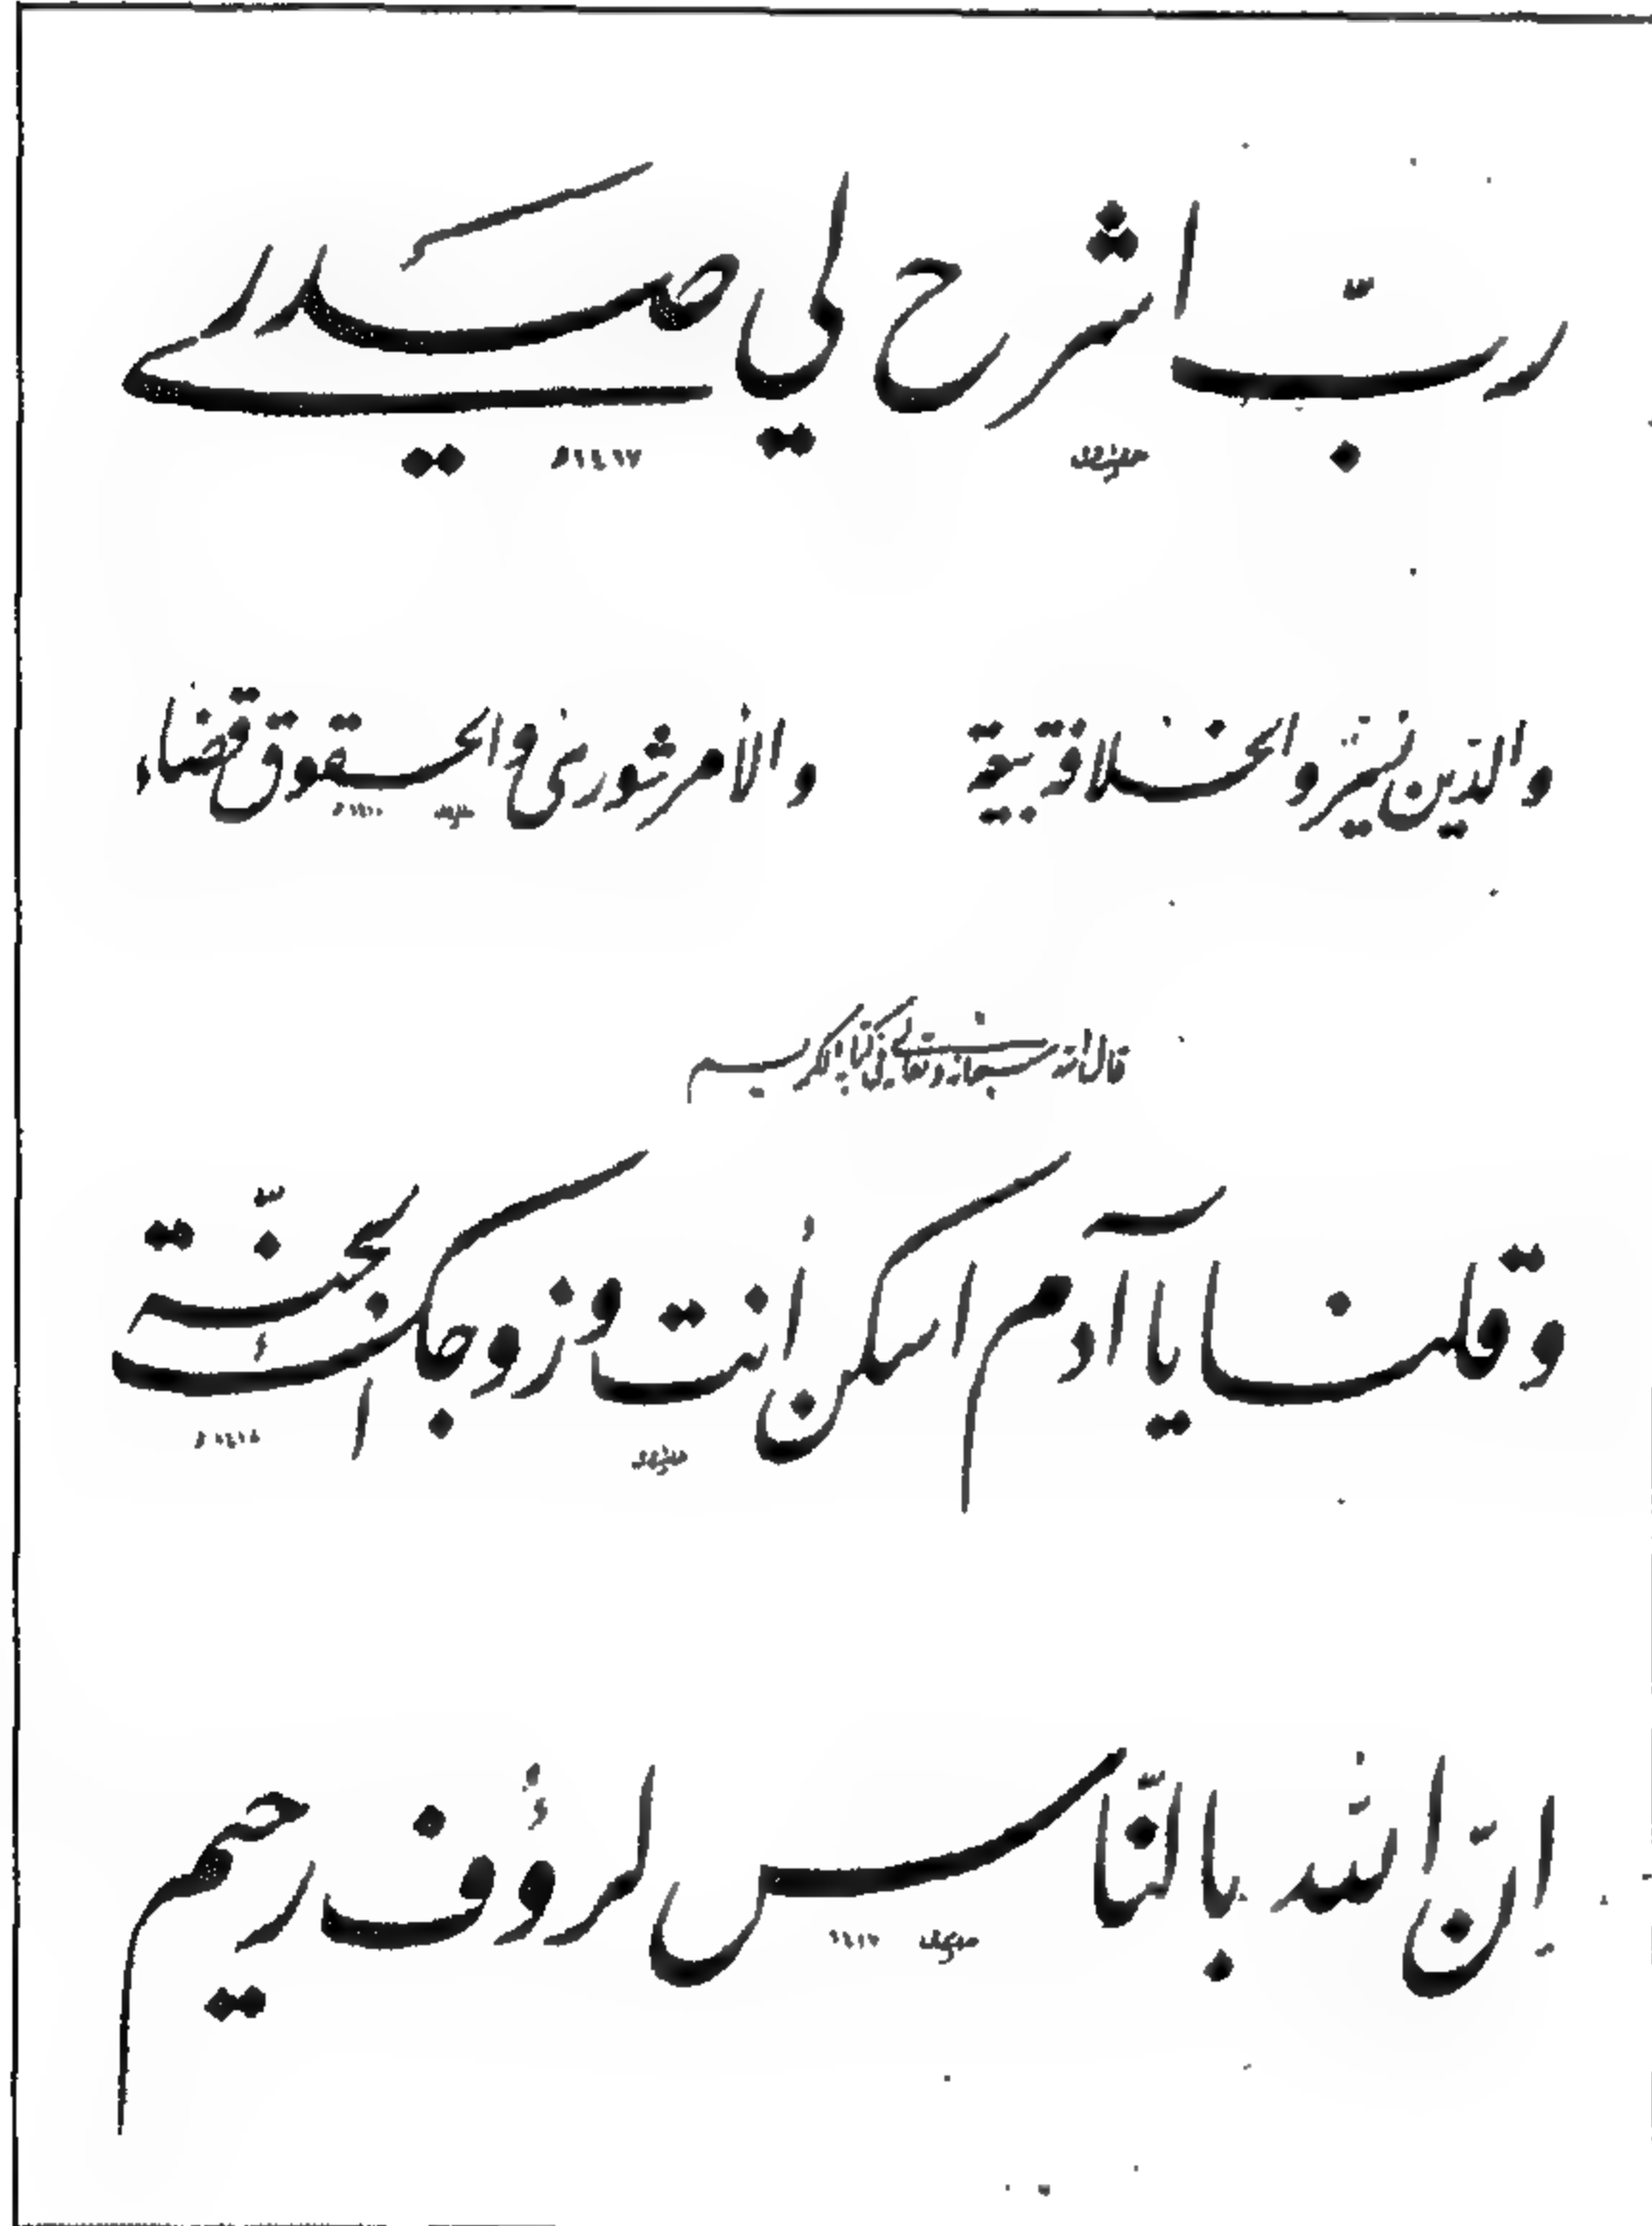 ربّ اشرح لي صدري
١٤١٧
والدّين يسر والخلافة بيعة والأمر شورى والحقوق قضاء
قال الله سبحانه وتعالى في كتابه الكريم
وقلنا يا آدم اسكن أنت وزوجك الجنّة
إنّ الله بالنّاس لرؤف رحيم